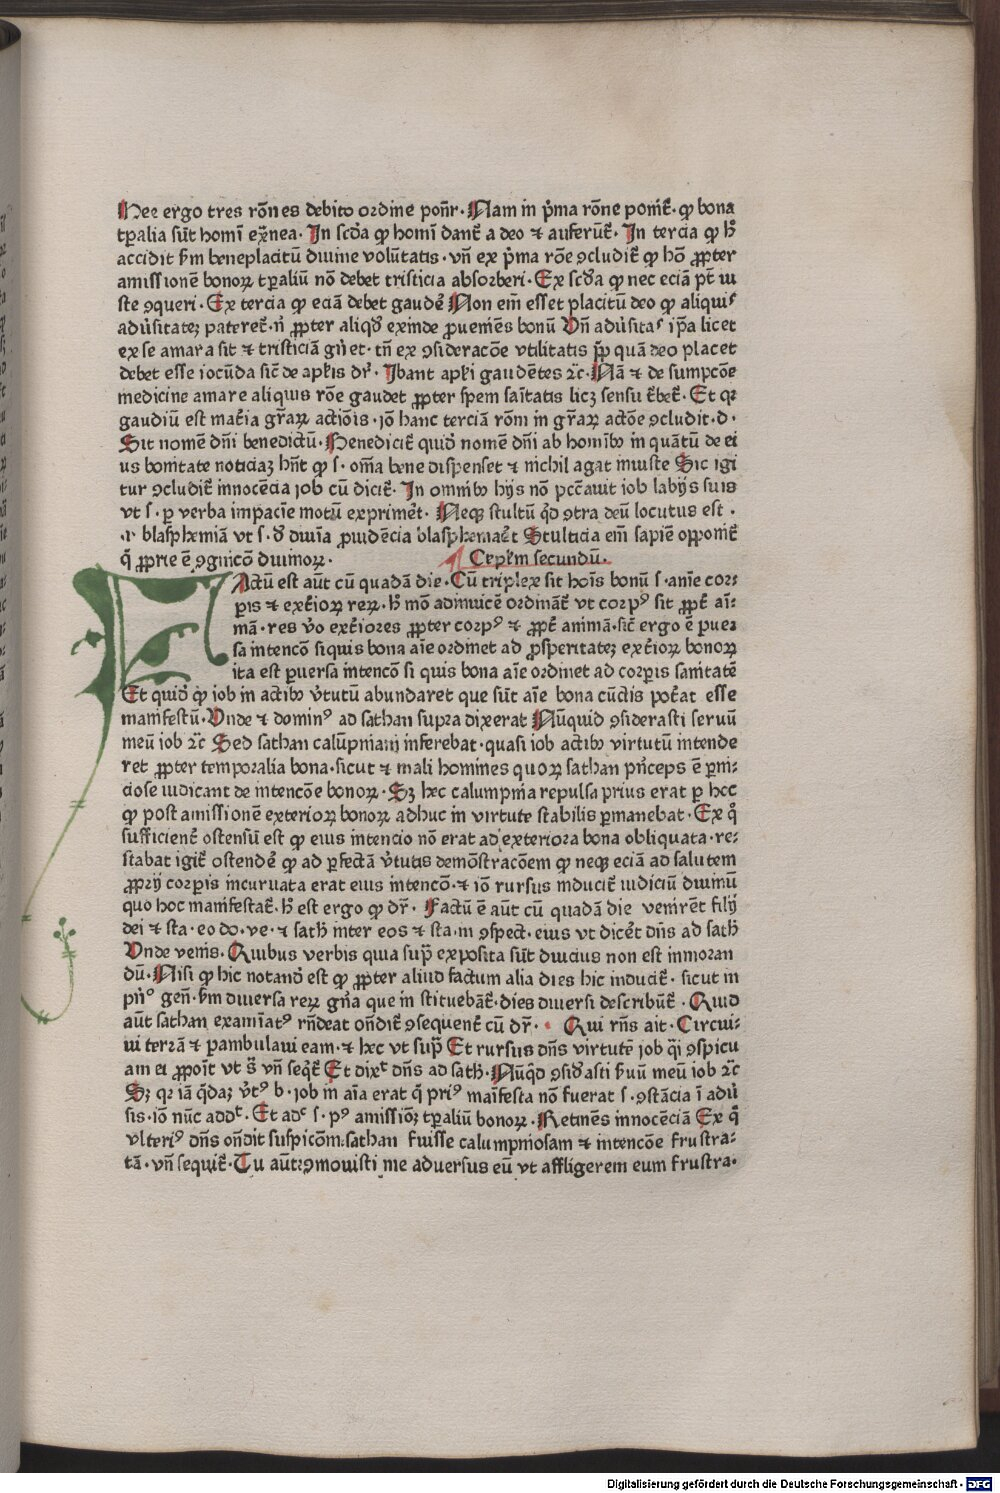 Hee ergo tres rōnes debito ordine ponr̄· Nam in p̄ma rōne ponit̄· ꝙ bona
tꝑalia sūt homī exn̄ea· In scd̄a ꝙ homī dant̄ a deo ⁊ auferūt̄· In tercia ꝙ h̄
accidit ẜm beneplacitū diuine volūtatis· vn̄ ex p̄ma rōe ꝯcludit̄ ꝙ hō ꝓpter
amissionē bonoꝝ tꝑaliū nō debet tristicia absorberi· Ex scd̄a ꝙ nec eciā pt̄ iu
ste ꝯqueri· Ex tercia ꝙ eciā debet gaudē Non em̄ esset placitū deo ꝙ aliquiˢ
adūsitateꝫ pateret̄· n̄ ꝓpter aliqd̄ exinde ꝓueniēs bonū Vn̄ adūsitaˢ ip̄a licet
ex se amara sit ⁊ tristiciā gn̄et· tn̄ ex ꝯsideracōe vtilitatis ꝓp quā deo placet
debet esse iocūda sic̄ de apl̄is dr̄· Ibant apl̄i gaudētes ⁊c̄· Nā ⁊ de sumpcōe
medicine amare aliquis rōe gaudet ꝓpter spem sāitatis licꝫ sensu t̄bet̄· Et qꝛ
gaudiū est mat̄ia gr̄aꝝ actiōis· iō hanc terciā rōm in gr̄aꝝ actōe ꝯcludit· d·
Sit nomē dn̄i benedictū· Benedicit̄ quid̄ nomē dn̄i ab homīb⁹ in quātū de ei
us bonitate noticiaꝫ hn̄t ꝙ s· om̄a bene dispenset ⁊ nichil agat iniuste Sic igi
tur ꝯcludit̄ innocēcia iob cū dicit̄· In omnib⁹ hijs nō pcc̄auit iob labijs suis
vt s· ꝑ verba impaciīe motū exprimēt· Neqꝫ stultū qd̄ ꝯtra deū locutus est ·
·i· blasphemiā vt s· d̄ diuīa ꝓuidēcia blasphemaēt Stulticia em̄ sapiē opponit̄
q̄ ꝓprie ē ꝯgnicō diuinoꝝ· Cepl̄m secundū·
Factū est aūt cū quadā die· Cū triplex sit hoīs bonū s· anīe cor⸗
ꝑis ⁊ ext̄ioꝝ reꝝ· h̄ mō adinuicē ordināt̄ vt corp⁹ sit ꝓpt̄ aī⸗
mā· res v̄o ext̄iores ꝓpter corp⁹ ⁊ ꝓpt̄ animā· sic̄ ergo ē ꝑuer
sa intencō siquis bona aīe ordinet ad ꝓsperitateꝫ ext̄ioꝝ bonoꝝ
ita est ꝑuersa intencō si quis bona aīe ordinet ad corꝑis sanitatē
Et quid̄ ꝙ iob in actib⁹ v̄tutū abundaret que sūt aīe bona cūctis pot̄at esse
manifestū· Vnde ⁊ domin⁹ ad sathan supra dixerat Nūquid ꝯsiderasti seruū
meū iob ⁊c̄ Sed sathan calūpniam inferebat· quasi iob actib⁹ virtutū intende
ret ꝓpter temporalia bona· sicut ⁊ mali homines quoꝝ sathan pn̄ceps ē ꝑni⸗
ciose iudicant de intencōe bonoꝝ· Sꝫ hec calumpnia repulsa prius erat ꝑ hoc
ꝙ post amissionē exterioꝝ bonoꝝ adhuc in virtute stabilis ꝑmanebat· Ex q̄
sufficient̄ ostensū est ꝙ eius intencio nō erat ad exteriora bona obliquata· re⸗
stabat igit̄ ostendē ꝙ ad ꝑfectā v̄tutis demōstracōem ꝙ neqꝫ eciā ad salutem
ꝓprij corꝑis incuruata erat eius intencō· ⁊ iō rursus inducit̄ iudiciū diuinū
quo hoc manifestat̄· h̄ est ergo ꝙ dr̄· Factū ē aūt cū quadā die venirēt filij
dei ⁊ sta· eo do· ve· ⁊ sath̄ inter eos ⁊ sta· in ꝯspect· eius vt dicēt dn̄s ad sath̄
Vnde venis· Quibus verbis quia sup̄ exposita sūt diucius non est inmoran
dū· Nisi ꝙ hic notand̄ est ꝙ ꝓpter aliud factum alia dies hic inducit̄· sicut in
pn̄° gen̄· ẜm diuersa reꝝ gn̄a que in stituebāt̄· dies diuersi describūt̄· Quid
aūt sathan examīat⁹ rn̄deat on̄dit̄ ꝯsequent̄ cū dr̄· Qui rn̄s ait· Circui⸗
ui terrā ⁊ ꝑambulaui eam· ⁊ hec vt sup̄ Et rursus dn̄s virtutē iob q̄i ꝯspicu
am ei ꝓpoīt vt s̄ vn̄ seqt̄ Et dixᵗ dn̄s ad sath̄· Nūqd̄ ꝯsid̄asti s̄uū meū iob ⁊c̄
Sꝫ qꝛ iā q̄daꝫ v̄t⁹ b· iob in aīa erat q̄ pri⁹ maīfesta nō fuerat s· ꝯstācia ī adū
sis· iō nūc addᵗ· Et adᶜ s· p⁹ amissiōꝫ tꝑaliū bonoꝝ· Retinēs innocēciā Ex q̄
vlteri⁹ dn̄s on̄dit suspicōm· sathan fuisse calumpniosam ⁊ intencōe frustra⸗
tā· vn̄ sequit̄· Tu aūt ꝯmouisti me aduersus eū vt affligerem eum frustra·
Digitalisierung gefördert durch die Deutsche Forschungsgemeinschaft · DFG